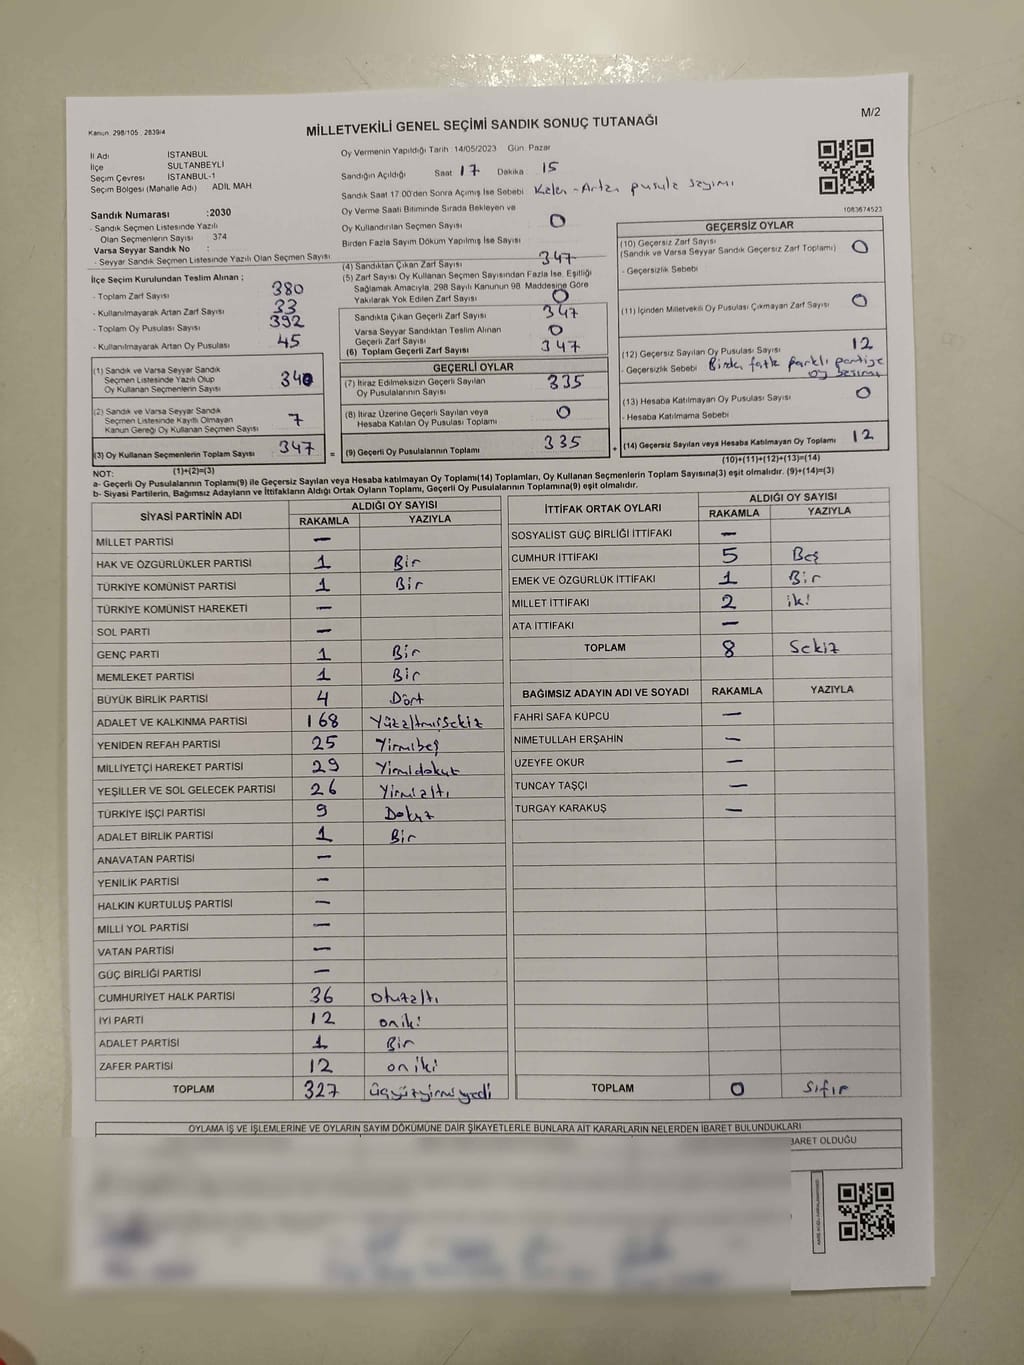 M/2
Kanun 298/105, 2839/4
MİLLETVEKİLİ GENEL SEÇİMİ SANDIK SONUÇ TUTANAĞI
İl Adı İSTANBUL
İlçe SULTANBEYLİ
Seçim Çevresi İSTANBUL-1
Seçim Bölgesi (Mahalle Adı) ADİL MAH
Sandık Numarası :2030
- Sandık Seçmen Listesinde Yazılı
Olan Seçmenlerin Sayısı 374
Varsa Seyyar Sandık No :
- Seyyar Sandık Seçmen Listesinde Yazılı Olan Seçmen Sayısı
İlçe Seçim Kurulundan Teslim Alınan ;
- Toplam Zarf Sayısı 380
- Kullanılmayarak Artan Zarf Sayısı 33
- Toplam Oy Pusulası Sayısı 392
- Kullanılmayarak Artan Oy Pusulası 45
(1) Sandık ve Varsa Seyyar Sandık
Seçmen Listesinde Yazılı Olup
Oy Kullanan Seçmenlerin Sayısı 340
(2) Sandık ve Varsa Seyyar Sandık
Seçmen Listesinde Kayıtlı Olmayan
Kanun Gereği Oy Kullanan Seçmen Sayısı 7
(3) Oy Kullanan Seçmenlerin Toplam Sayısı 347
(1)+(2)=(3)
Oy Vermenin Yapıldığı Tarih : 14/05/2023 Gün: Pazar
Sandığın Açıldığı Saat 17 Dakika 15
Sandık Saat 17:00'den Sonra Açımış İse Sebebi Kalan - Artan pusula sayımı
Oy Verme Saati Bitiminde Sırada Bekleyen ve
Oy Kullandırılan Seçmen Sayısı 0
Birden Fazla Sayım Döküm Yapılmış İse Sayısı
(4) Sandıktan Çıkan Zarf Sayısı 347
(5) Zarf Sayısı Oy Kullanan Seçmen Sayısından Fazla İse, Eşitliği
Sağlamak Amacıyla, 298 Sayılı Kanunun 98. Maddesine Göre
Yakılarak Yok Edilen Zarf Sayısı 0
Sandıkta Çıkan Geçerli Zarf Sayısı 347
Varsa Seyyar Sandıktan Teslim Alınan
Geçerli Zarf Sayısı 0
(6) Toplam Geçerli Zarf Sayısı 347
GEÇERLİ OYLAR
(7) İtiraz Edilmeksizin Geçerli Sayılan
Oy Pusulalarının Sayısı 335
(8) İtiraz Üzerine Geçerli Sayılan veya
Hesaba Katılan Oy Pusulası Toplamı 0
= (9) Geçerli Oy Pusulalarının Toplamı 335 +
1083674523
GEÇERSİZ OYLAR
(10) Geçersiz Zarf Sayısı 0
(Sandık ve Varsa Seyyar Sandık Geçersiz Zarf Toplamı)
- Geçersizlik Sebebi
(11) İçinden Milletvekili Oy Pusulası Çıkmayan Zarf Sayısı 0
(12) Geçersiz Sayılan Oy Pusulası Sayısı 12
- Geçersizlik Sebebi Birden fazla farklı partiye
oy basımı
(13) Hesaba Katılmayan Oy Pusulası Sayısı 0
- Hesaba Katılmama Sebebi
(14) Geçersiz Sayılan veya Hesaba Katılmayan Oy Toplamı 12
(10)+(11)+(12)+(13)=(14)
NOT:
a- Geçerli Oy Pusulalarının Toplamı(9) ile Geçersiz Sayılan veya Hesaba katılmayan Oy Toplamı(14) Toplamları, Oy Kullanan Seçmenlerin Toplam Sayısına(3) eşit olmalıdır. (9)+(14)=(3)
b- Siyasi Partilerin, Bağımsız Adayların ve İttifakların Aldığı Ortak Oyların Toplamı, Geçerli Oy Pusulalarının Toplamına(9) eşit olmalıdır.
SİYASİ PARTİNİN ADI ALDIĞI OY SAYISI
RAKAMLA YAZIYLA
MİLLET PARTİSİ —
HAK VE ÖZGÜRLÜKLER PARTİSİ 1 Bir
TÜRKİYE KOMÜNİST PARTİSİ 1 Bir
TÜRKİYE KOMÜNİST HAREKETİ —
SOL PARTİ —
GENÇ PARTİ 1 Bir
MEMLEKET PARTİSİ 1 Bir
BÜYÜK BİRLİK PARTİSİ 4 Dört
ADALET VE KALKINMA PARTİSİ 168 Yüzaltmışsekiz
YENİDEN REFAH PARTİSİ 25 Yirmibeş
MİLLİYETÇİ HAREKET PARTİSİ 29 Yirmidokuz
YEŞİLLER VE SOL GELECEK PARTİSİ 26 Yirmialtı
TÜRKİYE İŞÇİ PARTİSİ 9 Dokuz
ADALET BİRLİK PARTİSİ 1 Bir
ANAVATAN PARTİSİ —
YENİLİK PARTİSİ —
HALKIN KURTULUŞ PARTİSİ —
MİLLİ YOL PARTİSİ —
VATAN PARTİSİ —
GÜÇ BİRLİĞİ PARTİSİ —
CUMHURİYET HALK PARTİSİ 36 otuzaltı
İYİ PARTİ 12 oniki
ADALET PARTİSİ 1 Bir
ZAFER PARTİSİ 12 oniki
TOPLAM 327 üçyüzyirmiyedi
İTTİFAK ORTAK OYLARI ALDIĞI OY SAYISI
RAKAMLA YAZIYLA
SOSYALİST GÜÇ BİRLİĞİ İTTİFAKI —
CUMHUR İTTİFAKI 5 Beş
EMEK VE ÖZGÜRLÜK İTTİFAKI 1 Bir
MİLLET İTTİFAKI 2 iki
ATA İTTİFAKI —
TOPLAM 8 Sekiz
BAĞIMSIZ ADAYIN ADI VE SOYADI RAKAMLA YAZIYLA
FAHRİ SAFA KÜPCÜ —
NİMETULLAH ERŞAHİN —
ÜZEYFE OKUR —
TUNCAY TAŞÇI —
TURGAY KARAKUŞ —
TOPLAM 0 Sıfır
OYLAMA İŞ VE İŞLEMLERİNE VE OYLARIN SAYIM DÖKÜMÜNE DAİR ŞİKAYETLERLE BUNLARA AİT KARARLARIN NELERDEN İBARET BULUNDUKLARI
İBARET OLDUĞU